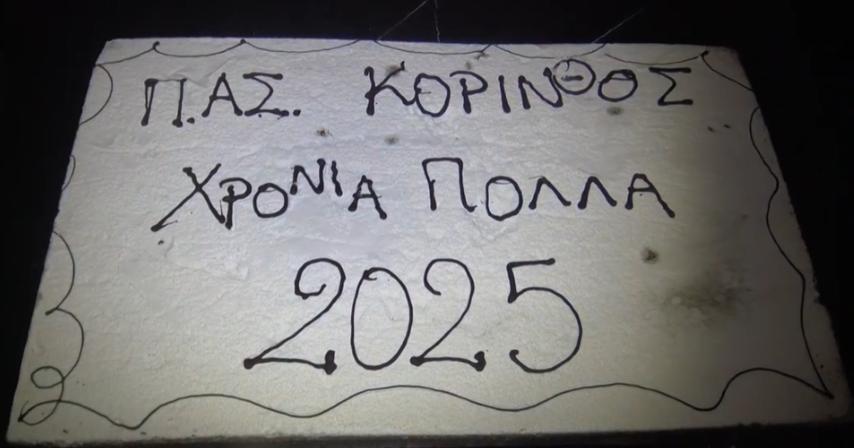 Π.ΑΣ. ΚΟΡΙΝΘΟΣ
ΧΡΟΝΙΑ ΠΟΛΛΑ
2025